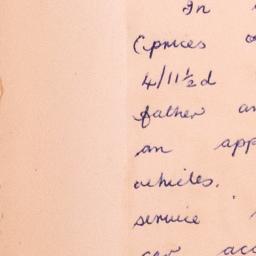 In
(prices
4/11½d
father an
an app
vehicles.
service
car acc